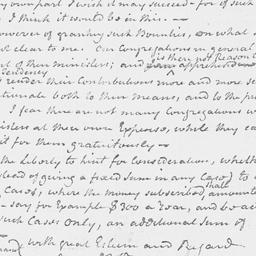 my own part I wish it may succeed - for of such
I think it would be in this. -
power of granting such Bounties, on what
t clear to me. Our Congregations in general
is there not Reason
t of their ministers; and I am apprehend
Tendency
render their Contributions more and more
tionable both to their means, and to the
I fear there are not many Congregations
isters at their own Expense, while they can
it for them gratuitously -
the Liberty to hint for Consideration, whether
stead of giving a fixed Sum in any Case) to
Cases, where the money subscribed shall amount
- say for Example $300 a Year, and be
such Cases only, an additional Sum of
with great Esteem and Regard